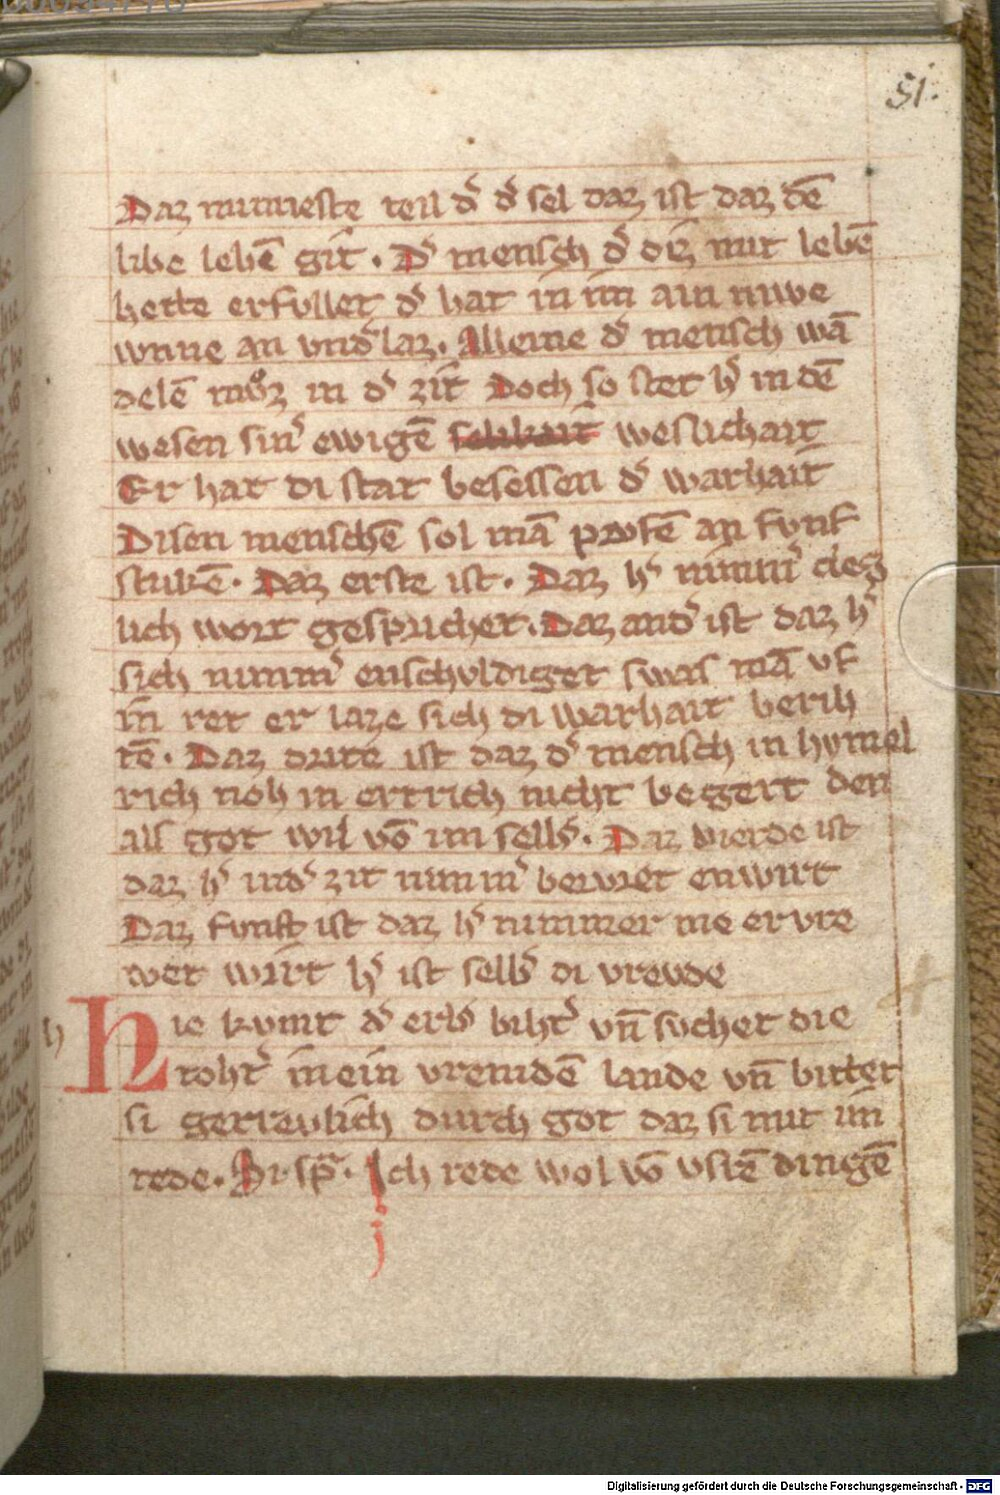 51.
Daz minneste teil d᷒ d᷒ sel daz ist daz dē
libe lebē git. D᷒ mensch d᷒ diz mit lebē
hette erfullet d᷒ hat in im ain niwe
wnne an vnd᷒laz. Alleine d᷒ mensch wā
delē mv̊z in d᷒ zit Doch so stet h᷒ in dē
wesen sin᷒ ewigē selikait weslichait
Er hat di stat besessen d᷒ warhait
Disen menschē sol mā prvfē an fvnf
stukē. Daz erste ist. Daz h᷒ nimm᷒ cleg
lich wort gesprichet. Daz and᷒ ist daz h᷒
sich nimm᷒ enschvldiget swas mā vf
in ret er laze sich di warhait berih
tē. Daz drite ist daz d᷒ mensch in hymel
rich noh in ertrich nicht begert den
als got wil vō im selb᷒. Daz vierde ist
daz h᷒ in d᷒ zit nimm᷒ betrvbet enwirt
Daz fvnft ist daz h᷒ nimmer me ervre
wet wirt h᷒ ist selb᷒ di vrevde
h
Hie kvmt d᷒ erb᷒ biht᷒ vn̄ svchet die
toht᷒ in ein vremdē lande vn̄ bittet
si getrevlich durch got daz si mit im
rede. Si sp͛ͣ. Ich rede wol vō vsirē dingē
Digitalisierung gefördert durch die Deutsche Forschungsgemeinschaft - DFG